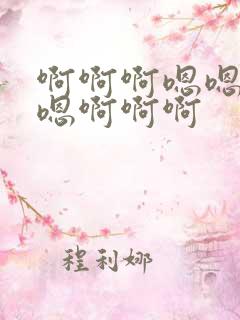 啊啊啊嗯嗯
嗯啊啊啊
程利娜